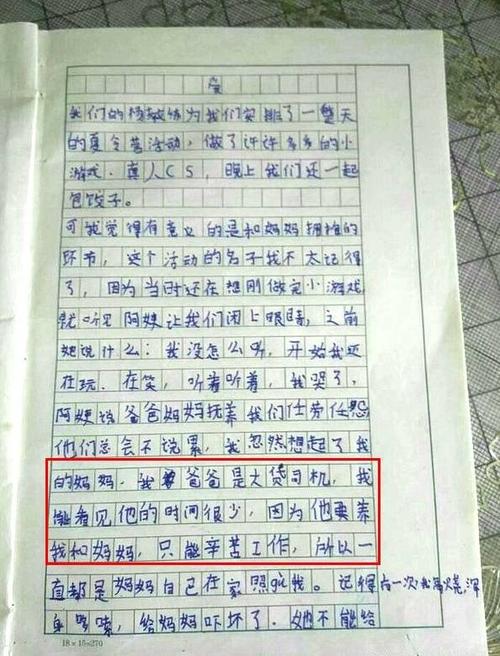 爱
我们的杨教练为我们安排了一整天
的夏令营活动，做了许许多多的小
游戏．真人CS，晚上我们还一起
包饺子。
可我觉得有意义的是和妈妈拥抱的
环节，这个活动的名子我不太记得
了，因为当时还在想刚做完小游戏
就听见阿姨让我们闭上眼睛，之前
她说什么：我没怎么听，开始我还
在玩．在笑，听着听着，我哭了，
阿姨说爸爸妈妈抚养我们任劳任怨
他们总会不说累，我忽然想起了我
的妈妈．我爸爸是大货司机，我
能看见他的时间很少，因为他要养
我和妈妈，只能辛苦工作，所以一
直都是妈妈自己在家照gu我。记得有一次我高烧，浑
身哆嗦，给妈妈吓坏了．她不能给
18×15=270